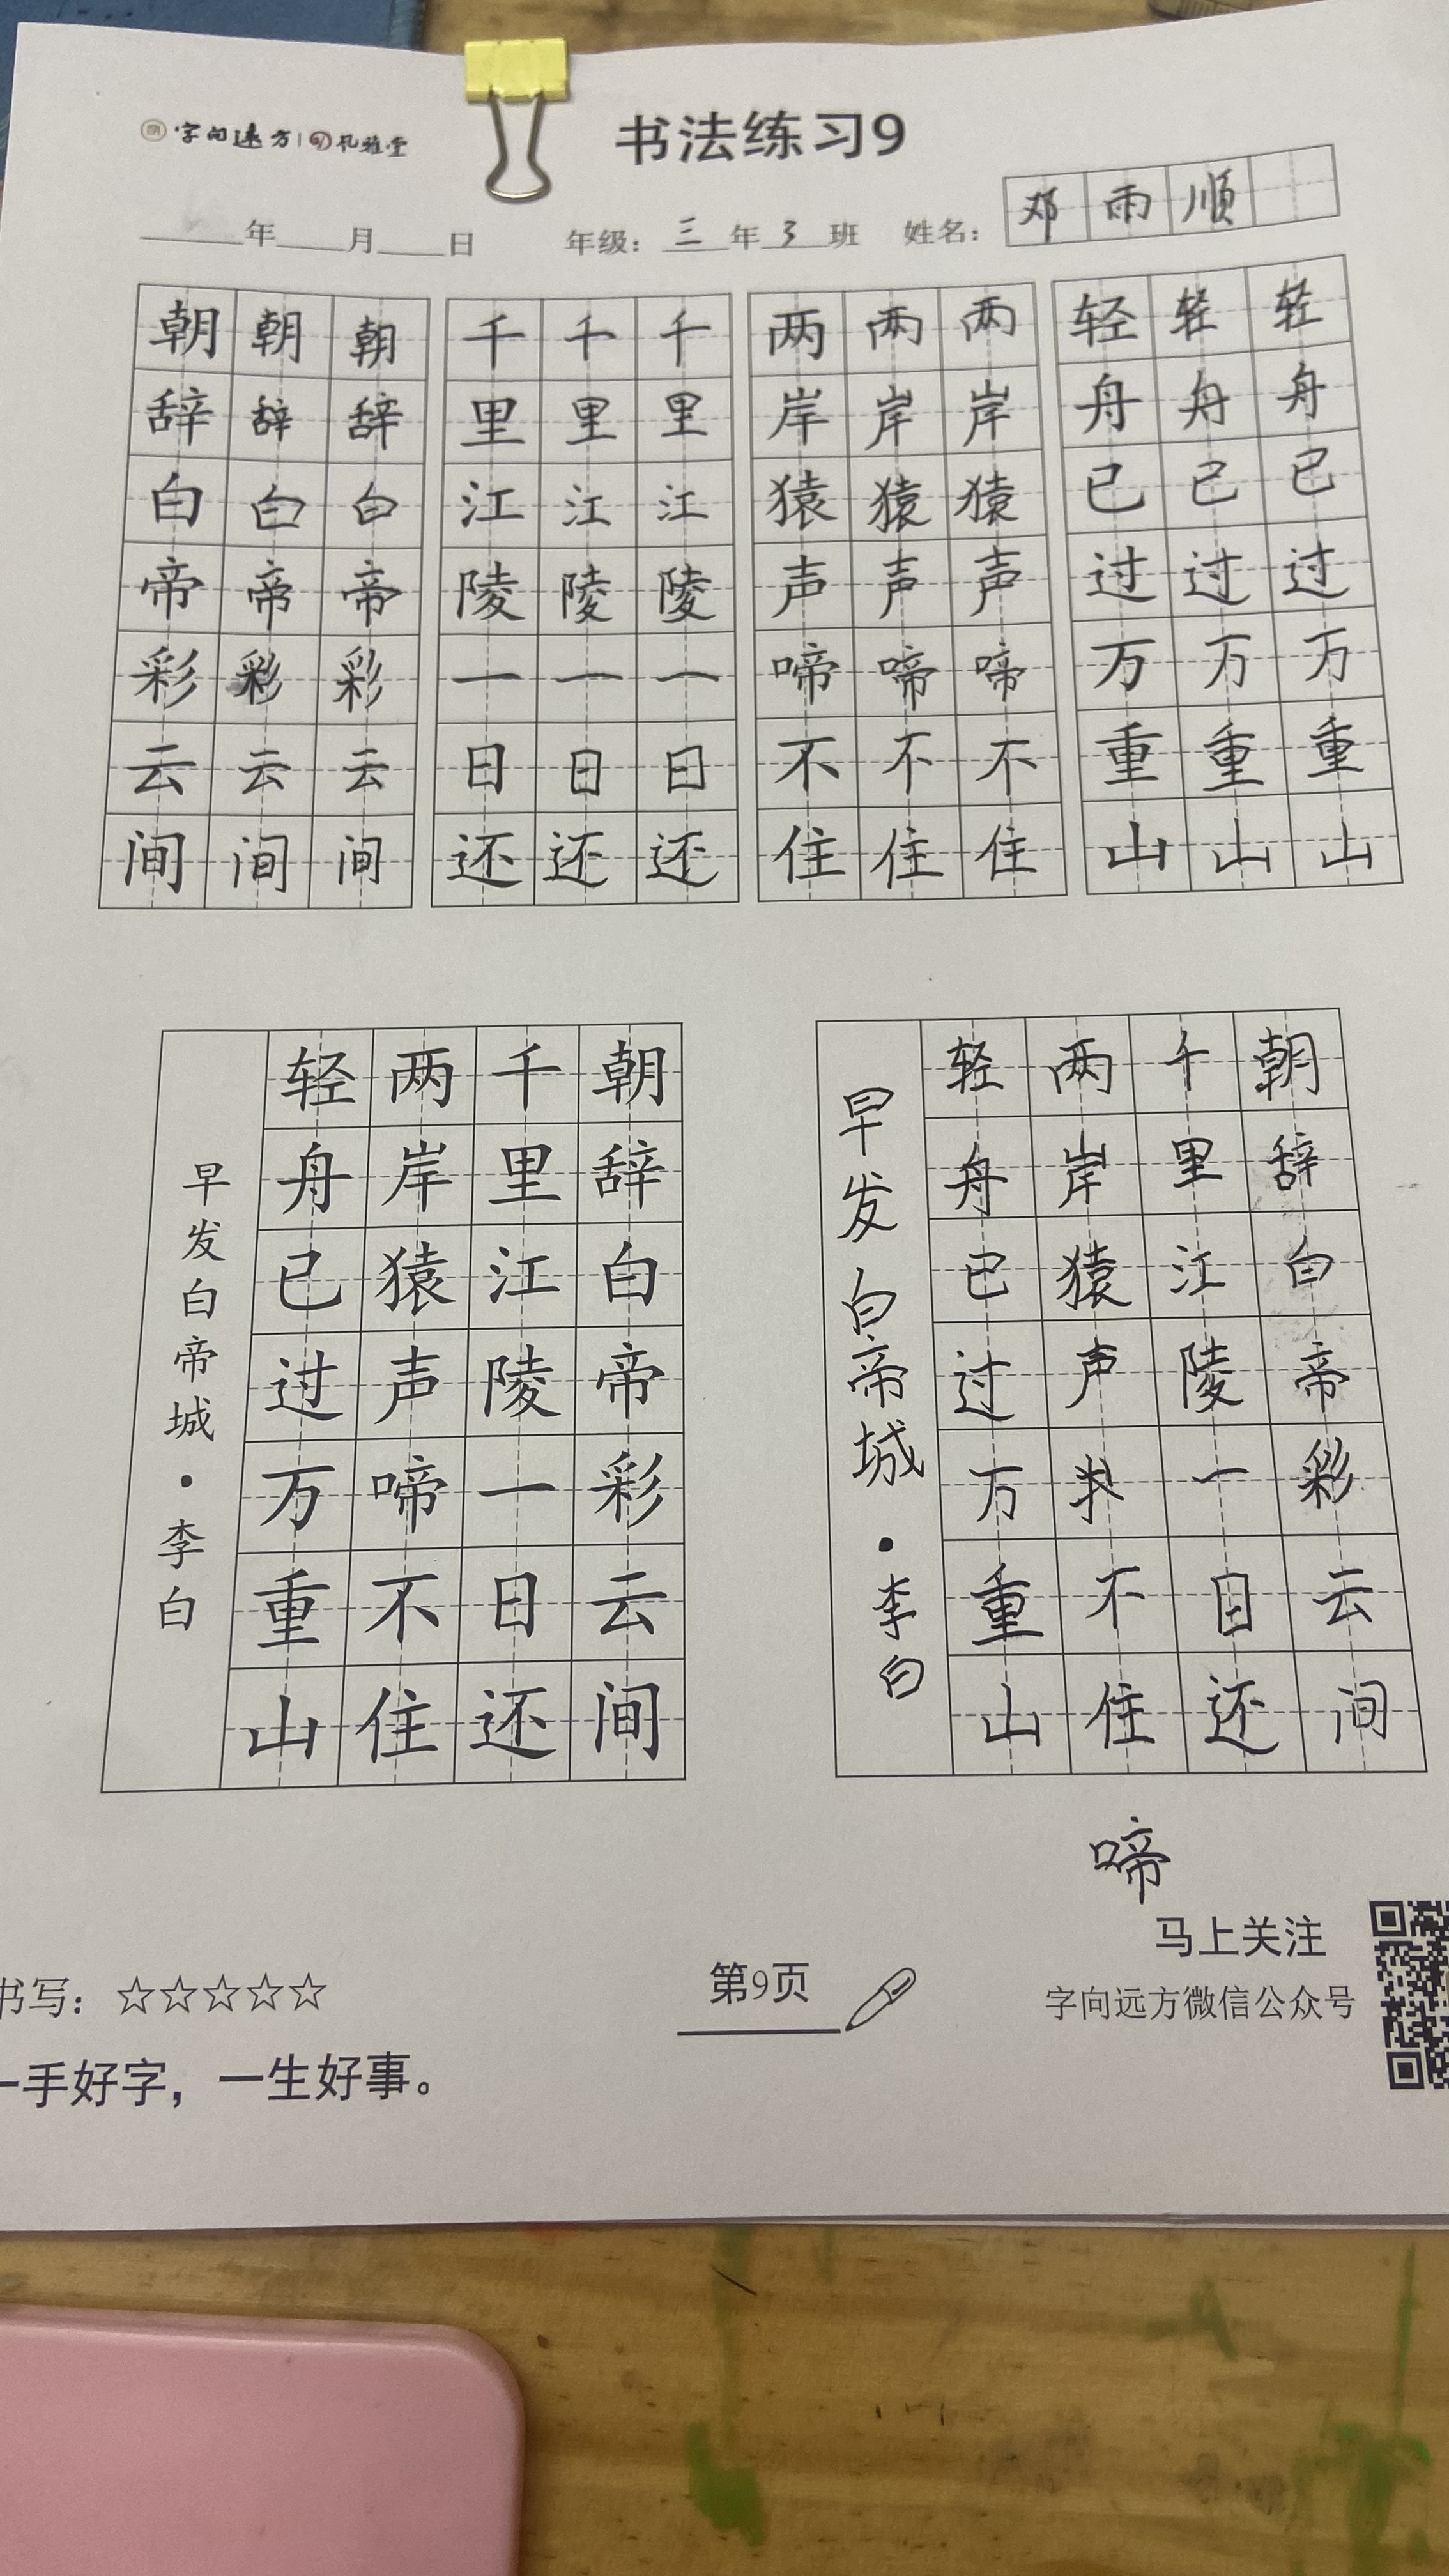 字向远方 礼雅堂
书法练习9
年 月 日 年级：三年3班 姓名：邓雨顺
朝朝朝 千千千 两两两 轻轻轻
辞辞辞 里里里 岸岸岸 舟舟舟
白白白 江江江 猿猿猿 已已已
帝帝帝 陵陵陵 声声声 过过过
彩彩彩 一一一 啼啼啼 万万万
云云云 日日日 不不不 重重重
间间间 还还还 住住住 山山山
朝辞白帝彩云间
千里江陵一日还
两岸猿声啼不住
轻舟已过万重山
早发白帝城·李白
朝辞白帝彩云间
千里江陵一目还
两岸猿声 不住
轻舟已过万重山
早发白帝城·李白
啼
书写：☆☆☆☆☆
第9页
马上关注
字向远方微信公众号
一手好字，一生好事。